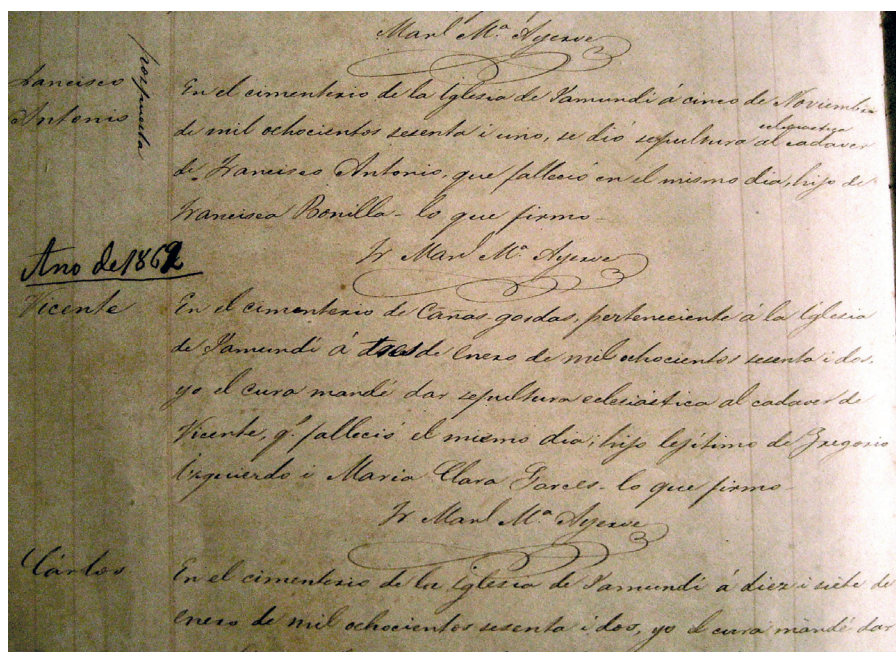 Manl Mª Ayerve
Francisco
Antonio
pospuesta
En el cimenterio de la Iglesia de Jamundí á cinco de Noviembre
de mil ochocientos sesenta i uno, se dió sepultura eclesiastica al cadaver
de Francisco Antonio, que falleció en el mismo dia, hijo de
Francisca Bonilla - lo que firmo -
Fr Manl Mª Ayerve
Ano de 1862
Vicente
En el cimenterio de Cañas gordas, perteneciente á la Iglesia
de Jamundí á tres de Enero de mil ochocientos sesenta i dos,
yo el cura mandé dar sepultura eclesiástica al cadaver de
Vicente, q. falleció el mismo dia; hijo lejítimo de Gregorio
Izquierdo i Maria Clara Garces - lo que firmo -
Fr Manl Mª Ayerve
Cárlos
En el cimenterio de la Iglesia de Jamundí á diez i siete de
enero de mil ochocientos sesenta i dos, yo el cura mandé dar